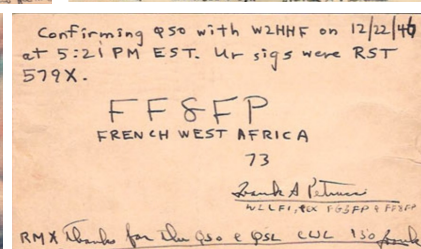 Confirming QSO with W2HHF on 12/22/46
at 5:21 PM EST. Ur sigs were RST
579X.
FF8FP
FRENCH WEST AFRICA
73
Frank A
W2LFI, FG3FP & FF8FP
RMX Thanks for the QSO